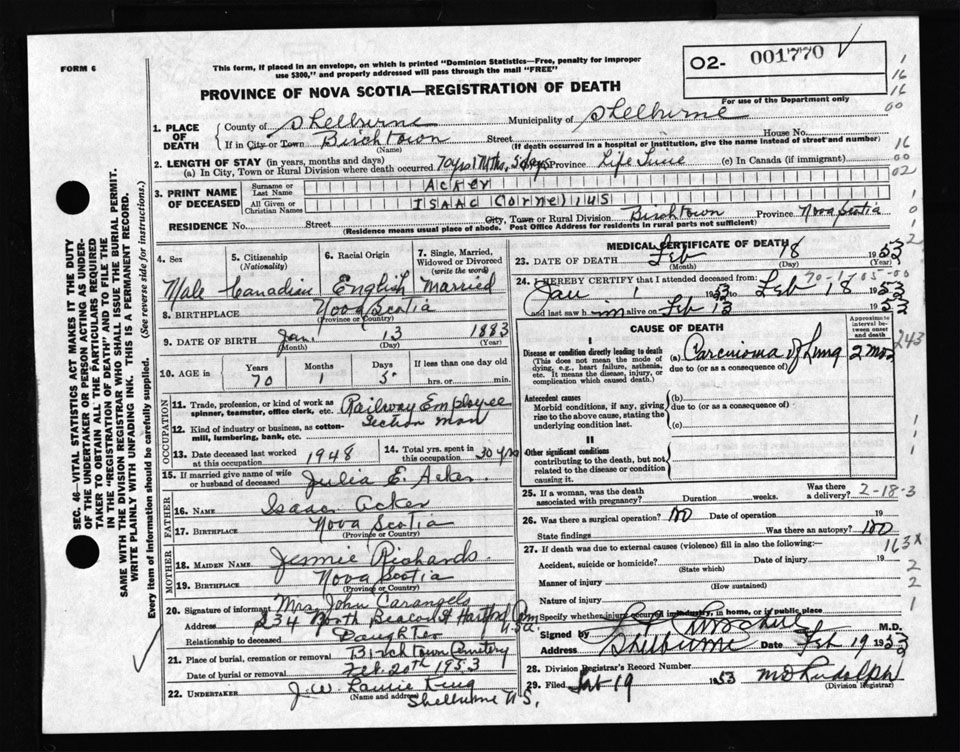 FORM 6
This form, if placed in an envelope, on which is printed "Dominion Statistics—Free, penalty for improper
use $300," and properly addressed will pass through the mail "FREE"
PROVINCE OF NOVA SCOTIA—REGISTRATION OF DEATH
O2- 001770
For use of the Department only
1. PLACE OF DEATH
County of Shelburne Municipality of Shelburne
If in City or Town Birchtown Street House No.
(Name) (If death occurred in a hospital or institution, give the name instead of street and number)
2. LENGTH OF STAY (in years, months and days)
(a) In City, Town or Rural Division where death occurred 70 yrs 1 Mths, 5 days Province Life Time (c) In Canada (if immigrant)
3. PRINT NAME OF DECEASED
Surname or Last Name ACKER
All Given or Christian Names ISAAC Cornelius
RESIDENCE No. Street City, Town or Rural Division Birchtown Province Nova Scotia
(Residence means usual place of abode. Post Office Address for residents in rural parts not sufficient)
4. Sex
5. Citizenship (Nationality)
6. Racial Origin
7. Single, Married, Widowed or Divorced (write the word)
Male Canadian English Married
8. BIRTHPLACE Nova Scotia
(Province or Country)
9. DATE OF BIRTH Jan. 3 1883
(Month) (Day) (Year)
10. AGE in Years Months Days If less than one day
70 1 5 hrs. or min.
OCCUPATION
11. Trade, profession, or kind of work as spinner, teamster, office clerk, etc. Railway Employee
12. Kind of industry or business, as cotton-mill, lumbering, bank, etc. Section Man
13. Date deceased last worked at this occupation 1948
14. Total yrs. spent in this occupation 30 yrs
15. If married give name of wife or husband of deceased Julia E. Acker.
FATHER
16. NAME Isaac Acker
17. BIRTHPLACE Nova Scotia
(Province or Country)
MOTHER
18. MAIDEN NAME Jennie Richards.
19. BIRTHPLACE Nova Scotia
(Province or Country)
20. Signature of informant Mrs John Carangelo
Address 234 North Beacon St Hartford Conn
U.S.A.
Relationship to deceased Daughter
21. Place of burial, cremation or removal Birchtown Cemetery
Date of burial or removal Feb. 20th 1953
22. UNDERTAKER J. W. Laurie King
(Name and address)
Shelburne N.S.
MEDICAL CERTIFICATE OF DEATH
23. DATE OF DEATH Feb 18 1953
(Month) (Day) (Year)
24. I HEREBY CERTIFY that I attended deceased from:
Jan 1 1953 to Feb 18 1953
and last saw him alive on Feb 13 1953
CAUSE OF DEATH
Approximate interval between onset and death
I
Disease or condition directly leading to death (a) Carcinoma of Lung 2 mos
(This does not mean the mode of dying, e.g., heart failure, asthenia, etc. It means the disease, injury, or complication which caused death.)
due to (or as a consequence of)
Antecedent causes (b)
Morbid conditions, if any, giving rise to the above cause, stating the underlying condition last.
due to (or as a consequence of)
(c)
II
Other significant conditions
contributing to the death, but not related to the disease or condition causing it.
25. If a woman, was the death associated with pregnancy? Duration weeks. Was there a delivery? 2-18-3
26. Was there a surgical operation? No Date of operation 19
State findings Was there an autopsy? No
27. If death was due to external causes (violence) fill in also the following:—
Accident, suicide or homicide? Date 19
(State which)
Manner of injury
(How sustained)
Nature of injury
Specify whether injury occurred in industry, in home, or in public place
Signed by M.D.
Address Shelburne Date Feb 19 1953
28. Division Registrar's Record Number
29. Filed Feb 19 1953 M D Rudolph
(Division Registrar)
243
163x
SEC. 46—VITAL STATISTICS ACT MAKES IT THE DUTY
OF THE UNDERTAKER OR PERSON ACTING AS UNDER-
TAKER TO OBTAIN ALL THE PARTICULARS REQUIRED
IN THE "REGISTRATION OF DEATH" AND TO FILE THE
SAME WITH THE DIVISION REGISTRAR WHO SHALL ISSUE THE BURIAL PERMIT.
WRITE PLAINLY WITH UNFADING INK. THIS IS A PERMANENT RECORD.
Every item of information should be carefully supplied. (See reverse side for instructions.)